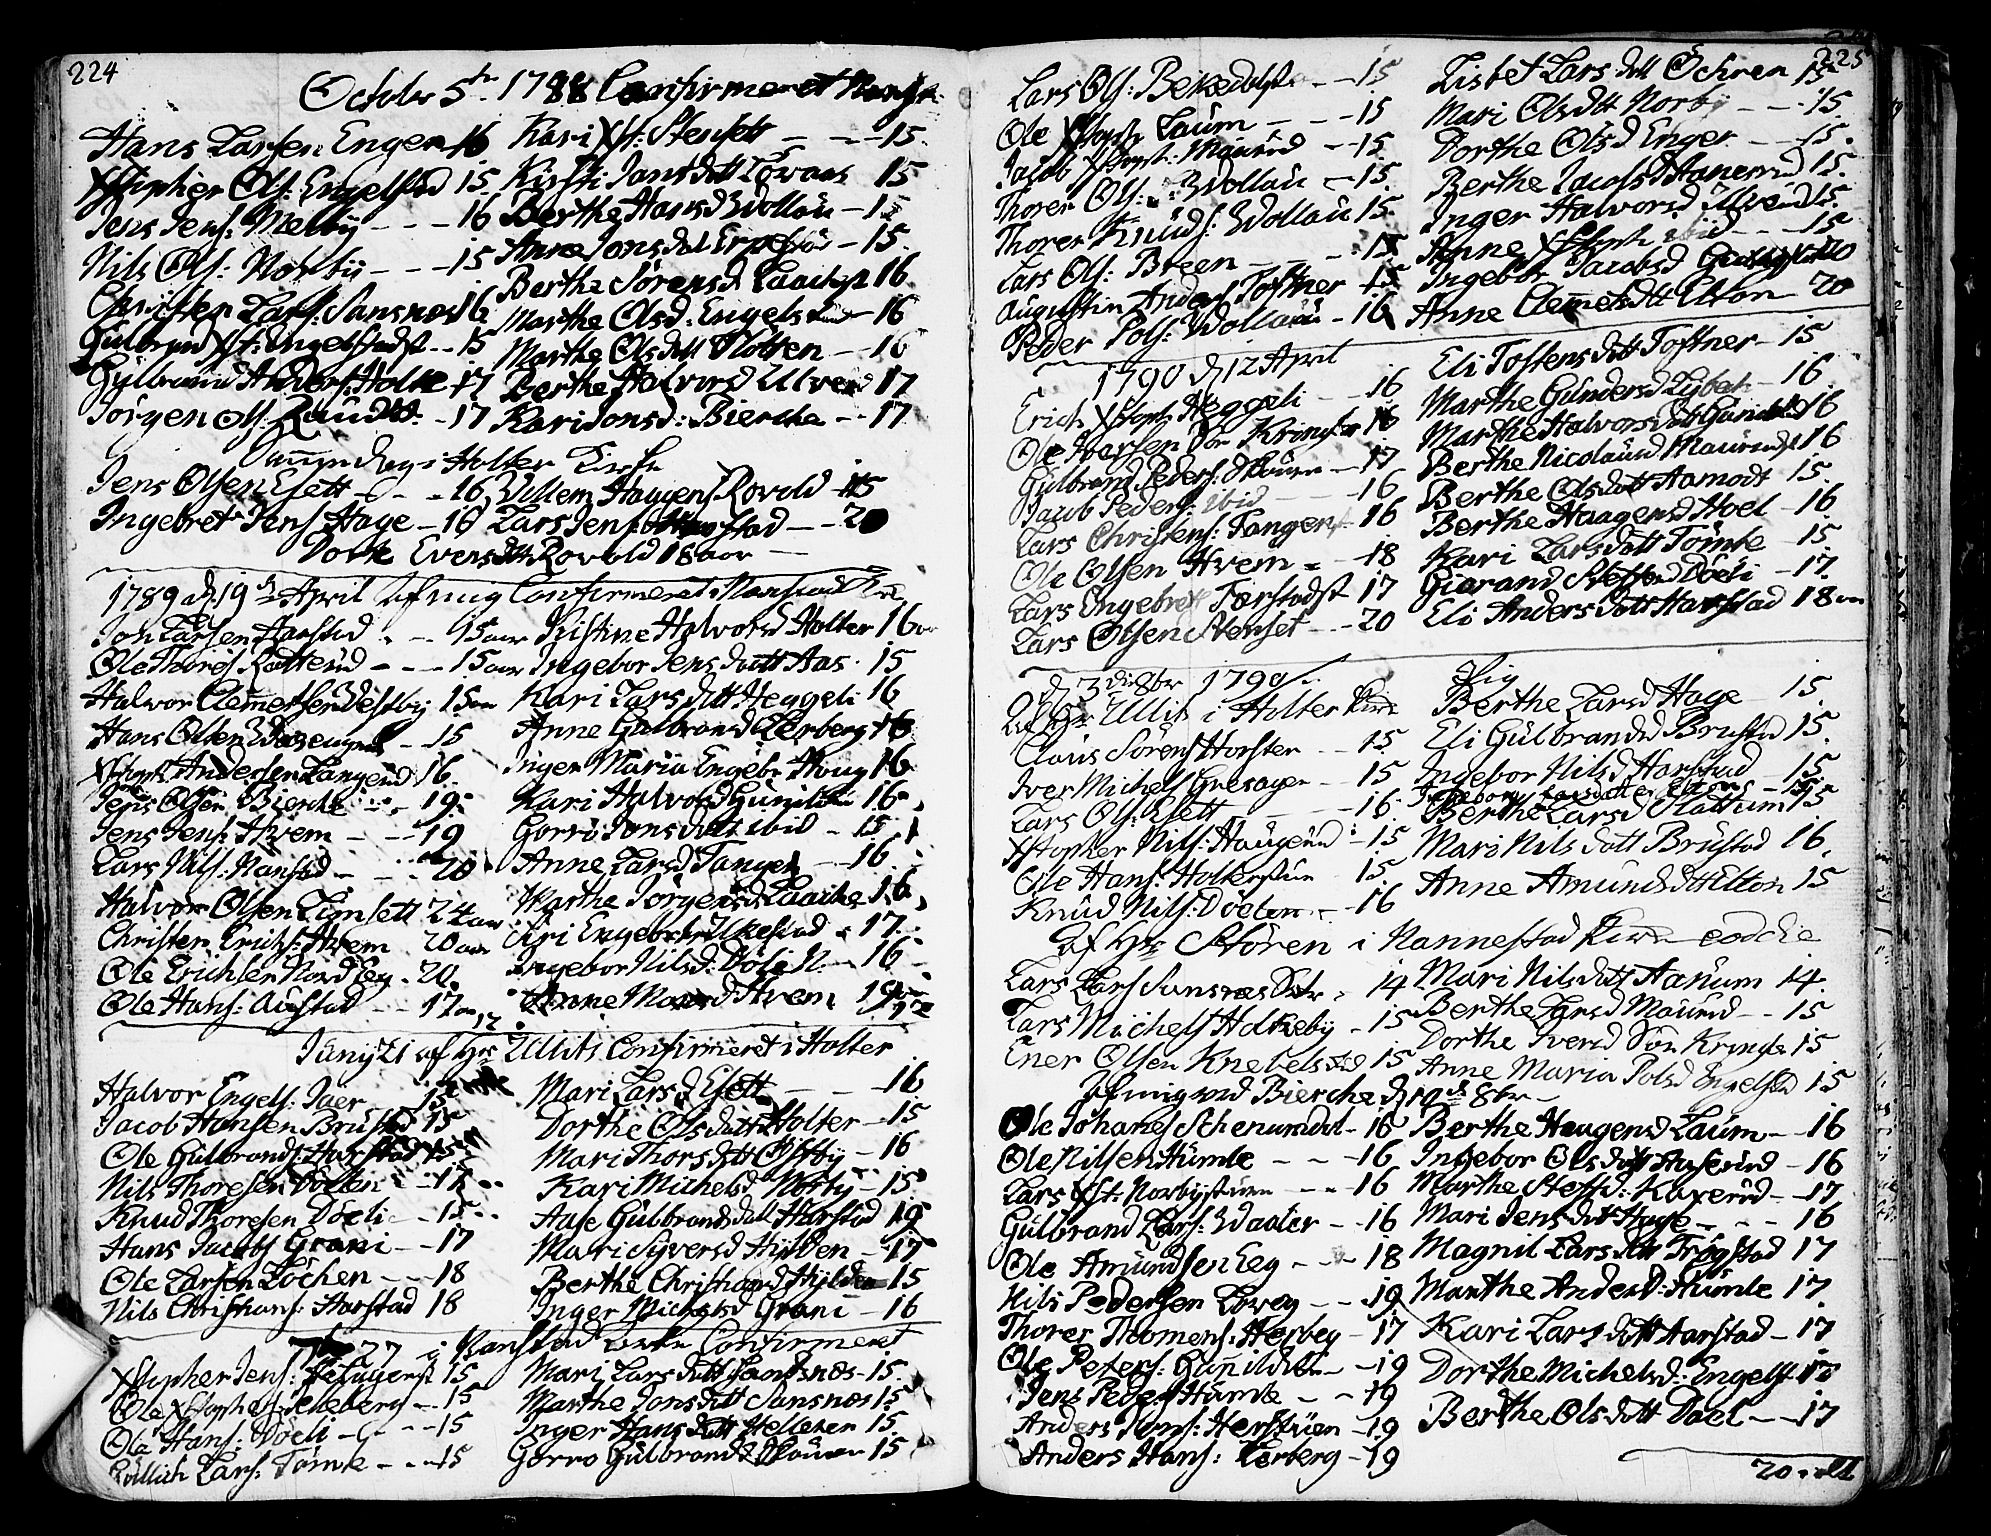 224
October 5te 1788 Confirmeret
Hans Larsen Enger 16
Xstopher Ols: Engelstad 15
Jens Jens: Melby - - - 16
Nils Ols: Norby - - - 15
Christen Lars: Sansnæs 16
Gulbrand Xst: Engelstadst - - 15
Gulbrand Anders: Holke 17
Jörgen Ols: - 17
Kari Xst: Stensett - - 15
Kirsti Jans datt Lövaas 15
Berthe Hansd Wollau - 15
Anne Jonsdat - 15
Berthe Sörensd Laache 16
Marthe Olsd: Engelst - 16
Marthe Olsdatt Slotten - 16
Berthe Halvord Ulven 17
Kari Jonsd: Bierche - - 17
i Holter Kirke
Jens Olsen Esett - - - 16
Ingebret Jens: Hage - 16
Willem Haagens Rovold - 15
Lars Jens: - - 20
Dorte Evensdatt Rovold 18 aar
1789 d 19de April af mig Confirmeret i Nanstad
Joh Larsen Harstad - - 15 aar
Ole Thores: Ratterud - - - 15 aar
Halvor Clemetsen Vestby 15 aar
Hans Olsen - 15
Xstoph Andersen Langerud 16
Jens Olsen Bierche - - 19
Jens Jens: Hvem - - - 19
Lars Nils: Nanstad - - - 20
Halvor Olsen Limsett 24 aar
Christen Erichs: Hvem 20 aar
Ole Erichsen Nord Eeg - 20
Ole Hans: Austad - - 17
Kristine Halvorsd Holter 16
Ingebor Jens datt Aas 15
Kari Larsdatt Heggeli 16
Anne Gulbrandsd Lerberg 16
Inger Maria Engebr Houg 16
Kari Halvorsd Gunild 16
Gorro Jonsdatt ibid - 15
Anne Larsd Tangen - 16
Marthe Jörgensd Laache 16
Siri Engebretsd - 17
Ingebor Nilsd: Döli N: - 16
Anne Hvem
Juny 21 af Hr: Ullits Confirmeret i Holter
Halvor Engels: Jaer 15
Jacob Hansen Brustad 15
Ole Gulbrands: Harstad 15
Nils Thoresen Dölen - 17
Knud Thoresen Döeli - 15
Hans Jacobs Grani - - 17
Ole Larsen Löchen - - - 18
Nils Christians: Harstad 18
Mari Larsd Esett - - 16
Dorthe Olsdatt Holter - 15
Mari Thorsdatt Ostby - 16
Kari Michelsd Norby - 15
Aase Gulbrandsdatt Harstad 19
Mari Syversd Hylden - 17
Berthe Christiansd Hylden 15
Inger Michelsd Grani - 16
27 i Nanstad Kirke Confirmeret
Xstopher Jens: 15
Ole Xstophers Jeleberg - 15
Ole Hans: Döeli - - - 15
Lars: Tömte - - - 15
Mari Larsdatt Sansnæs - 15
Marthe Jonsdatt Sansnæs 15
Inger Hansdatt Helleren 15
Gorro Gulbrandsd Skauen 15
225
Lars Ols: - - 15
Ole Xstoph Laum - - - 15
Jacob Xstoph: Maurud - - 15
Thorer Ols: Wollau - - 15
Thorer Knuds: Wollau 15
Lars Ols: Breen - - - 15
Augustin Anders Toftner 15
Peder Pols: Wollau - 16
Lisbet Larsdatt Ochren 15
Mari Olsdtt Norby - - - 15
Dorthe Olsd Enger - - 15
Berthe Jacobsd 15
Inger Halvorsd Ulverud 15
Anne Xstoph ibid - - - 15
Ingebor Jacobsd 20
Anne Clemetsdtt Elton - 20
1790 d 12 April
Erich Xstoph Heggeli - - 16
Ole Iversen Sör Kringler 16
Gulbrand Peders: Skauen - 17
Jacob Peders: ibid - - - 16
Lars Christens: Tangen 16
Ole Olsen Hvem - - 18
Lars Engebret Færstadst 17
Lars Olsen Stenset - - 20
Eli Tostensdatt Toftner - 15
Marthe Gundersd Lybech - 16
Marthe Halvorsdatt Gunild 16
Berthe Nicolausd Maurud 16
Berthe Olsdatt Aamodt 15
Berthe Haagensd Hoel - 16
Kari Larsdatt Tömte 15
Giorand Steffsd Döeli - 17
Eli Andersdatt Harstad 18
d 3die 8br 1790
af Hr: Ullits i Holter Kirke
Claus Sörens Horster - - 15
Iver Michels Gresager - - 15
Lars Ols: Esett - - - 16
Xstopher Nils: Haugerud - 15
Ole Hans: Holterstuen 15
Knud Nils: Döelen - - 16
Pig
Berthe Larsd Hage - 15
Eli Gulbrandsd Brustad 15
Ingebor Nilsd Harstad - 15
Ingeborg Larsdatter Eltons - 15
Berthe Larsd Slattum 15
Mari Nilsdatt Brustad 16
Anne Amundsdtt Elton 15
af Hr: Stören i Nannestad Kirke eod die
Lars Lars Sansnæs - 14
Lars Michels Holkeby - 15
Ener Olsen Knebelsrud 15
Mari Nilsdatt Aanum 14
Berthe Larsd Maurud - - 15
Dorthe Svend Sön Kringler 15
Anne Maria Polsd Engelstad 15
af mig ved Bierche d 10de 8br -
Ole Johannes - 16
Ole Nilsen Humle - - - 16
Lars Xst: Norbystuen - - - 16
Gulbrand Lars: Waaler - - 16
Ole Amundsen Eeg - - - 18
Nils Pedersen Lövey - - 19
Thorer Thomens: Herbey - 17
Ole Peters: Gunild - 19
Jens Peders Humle - - 19
Anders Jons: Herstuen - 19
Anders Hans: Lerberg - 19
Berthe Haugensd Laum - - 16
Ingebor Olsdatt Haserud - 16
Marthe Steffd: Kaxerud - - 17
Mari Jensdatt Hage - - - 16
Magnil Larsdatt Trögstad 17
Marthe Andersd: Humle 17
Kari Larsdatt Harstad - 17
Dorthe Michelsd: Engelst 17
Berthe Olsdatt Dael - - 17